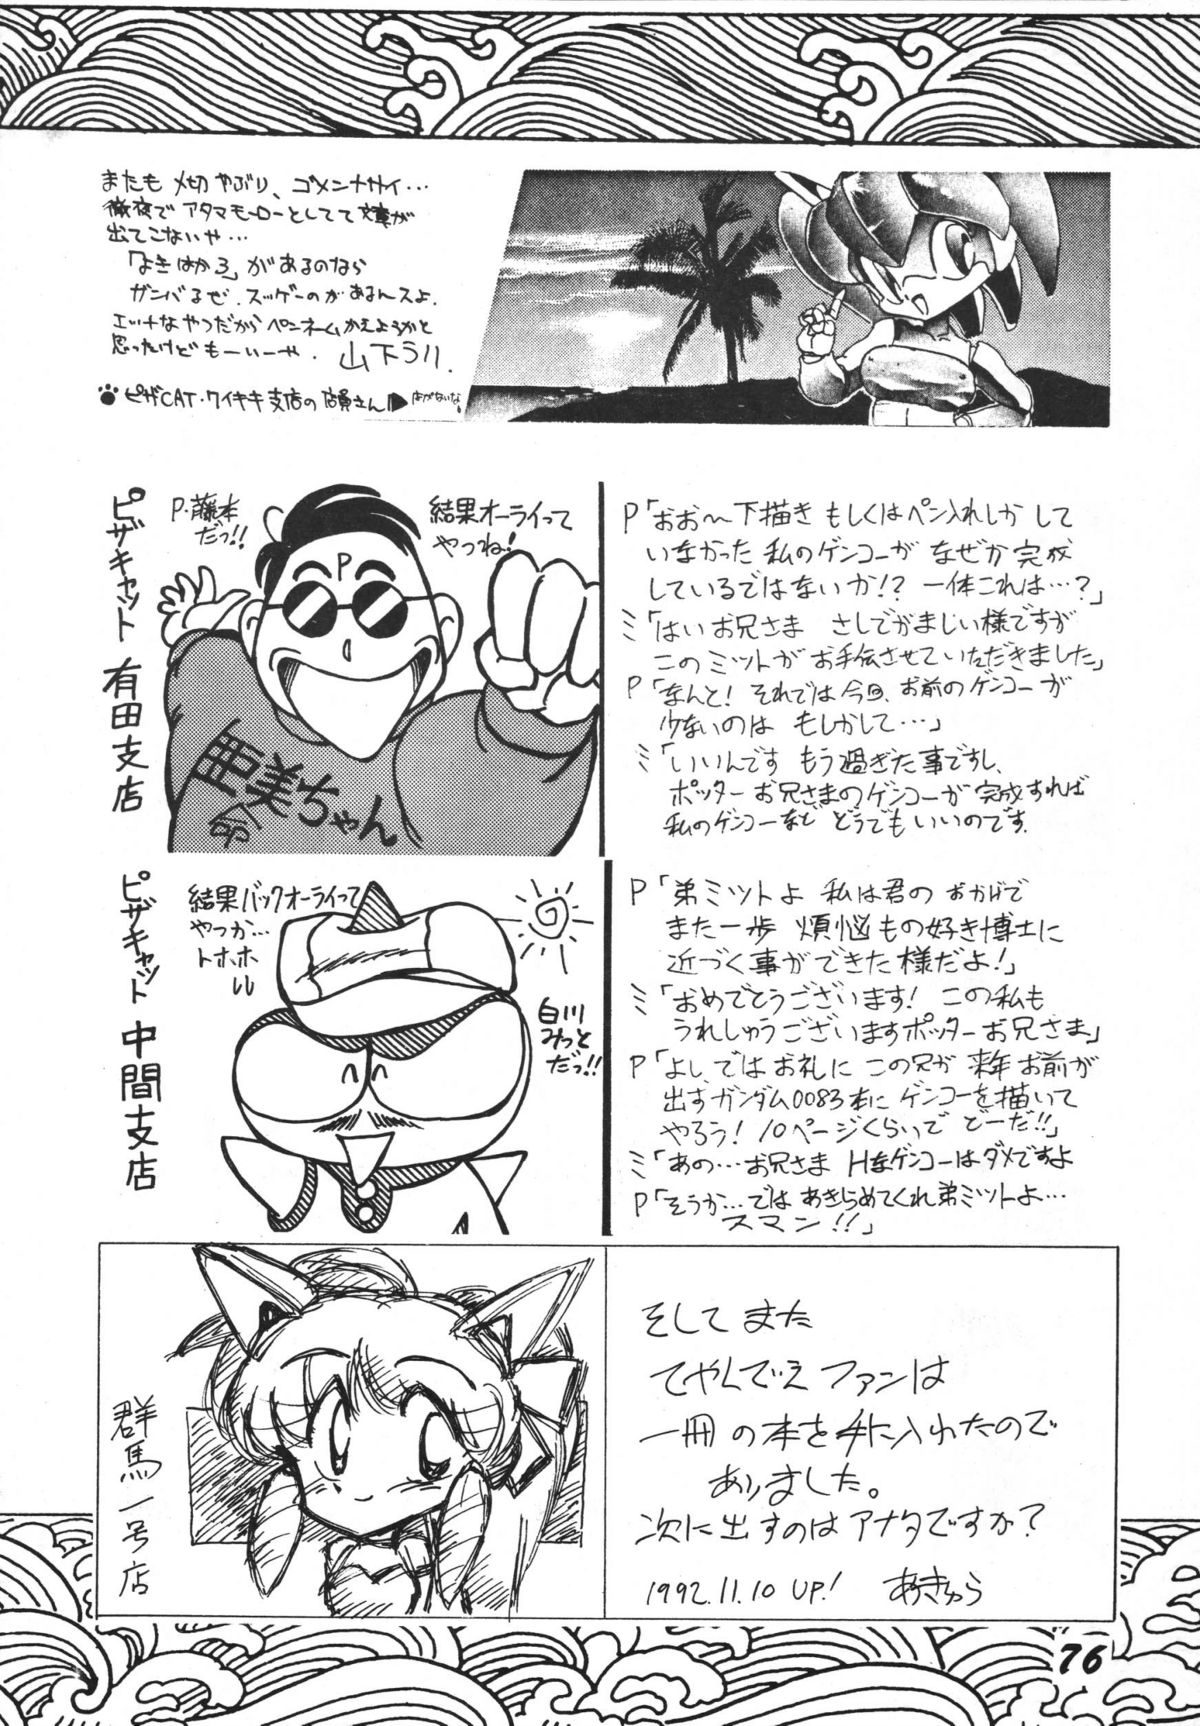 またも〆切やぶり、ゴメンナサイ…
徹夜でアタマモーローとしてて文章が
出てこないや…
「よきはから」があるのなら
ガンバるぜ.スッゲーのがあるんスよ.
エッナなやつだからペンネームかえようかと
思ったけどもーいーや. 山下うり.
ピザCAT・ワイキキ支店の店員さん▶
ピザキャット 有田支店
P.藤本
だっ!!
結果オーライって
やつね!
P
亜美ちゃん
命
P「おお〜下描き もしくはペン入れしか して
いなかった 私のゲンコーが なぜか完成
しているではないか!? 一体これは…?」
ミ「はい お兄さま さしでがましい様ですが
このミットが お手伝させていただきました」
P「なんと! それでは今回、お前のゲンコーが
少ないのは もしかして…」
ミ「いいんです もう過ぎた事ですし、
ポッターお兄さまのゲンコーが完成すれば
私のゲンコーなど どうでもいいのです.
ピザキャット 中間支店
結果バックオーライって
やつか…
トホホ
白川
みっと
だっ!!
P「弟ミットよ 私は君の おかげで
また一歩 煩悩もの好き博士に
近づく事ができた様だよ!」
ミ「おめでとうございます! この私も
うれしゅうございますポッターお兄さま」
P「よし、では お礼に この兄が 来年 お前が
出すガンダム0083本に ゲンコーを描いて
やろう! 10ページくらいで どーだ!!」
ミ「あの…お兄さま Hなゲンコーはダメですよ
P「そうか…では あきらめてくれ弟ミットよ…
スマン!!」
群馬一号店
そして また
てやんでえ ファンは
一冊の本を手に入れたので
ありました。
次に出すのは アナタですか?
1992.11.10 UP! あきゅら
76